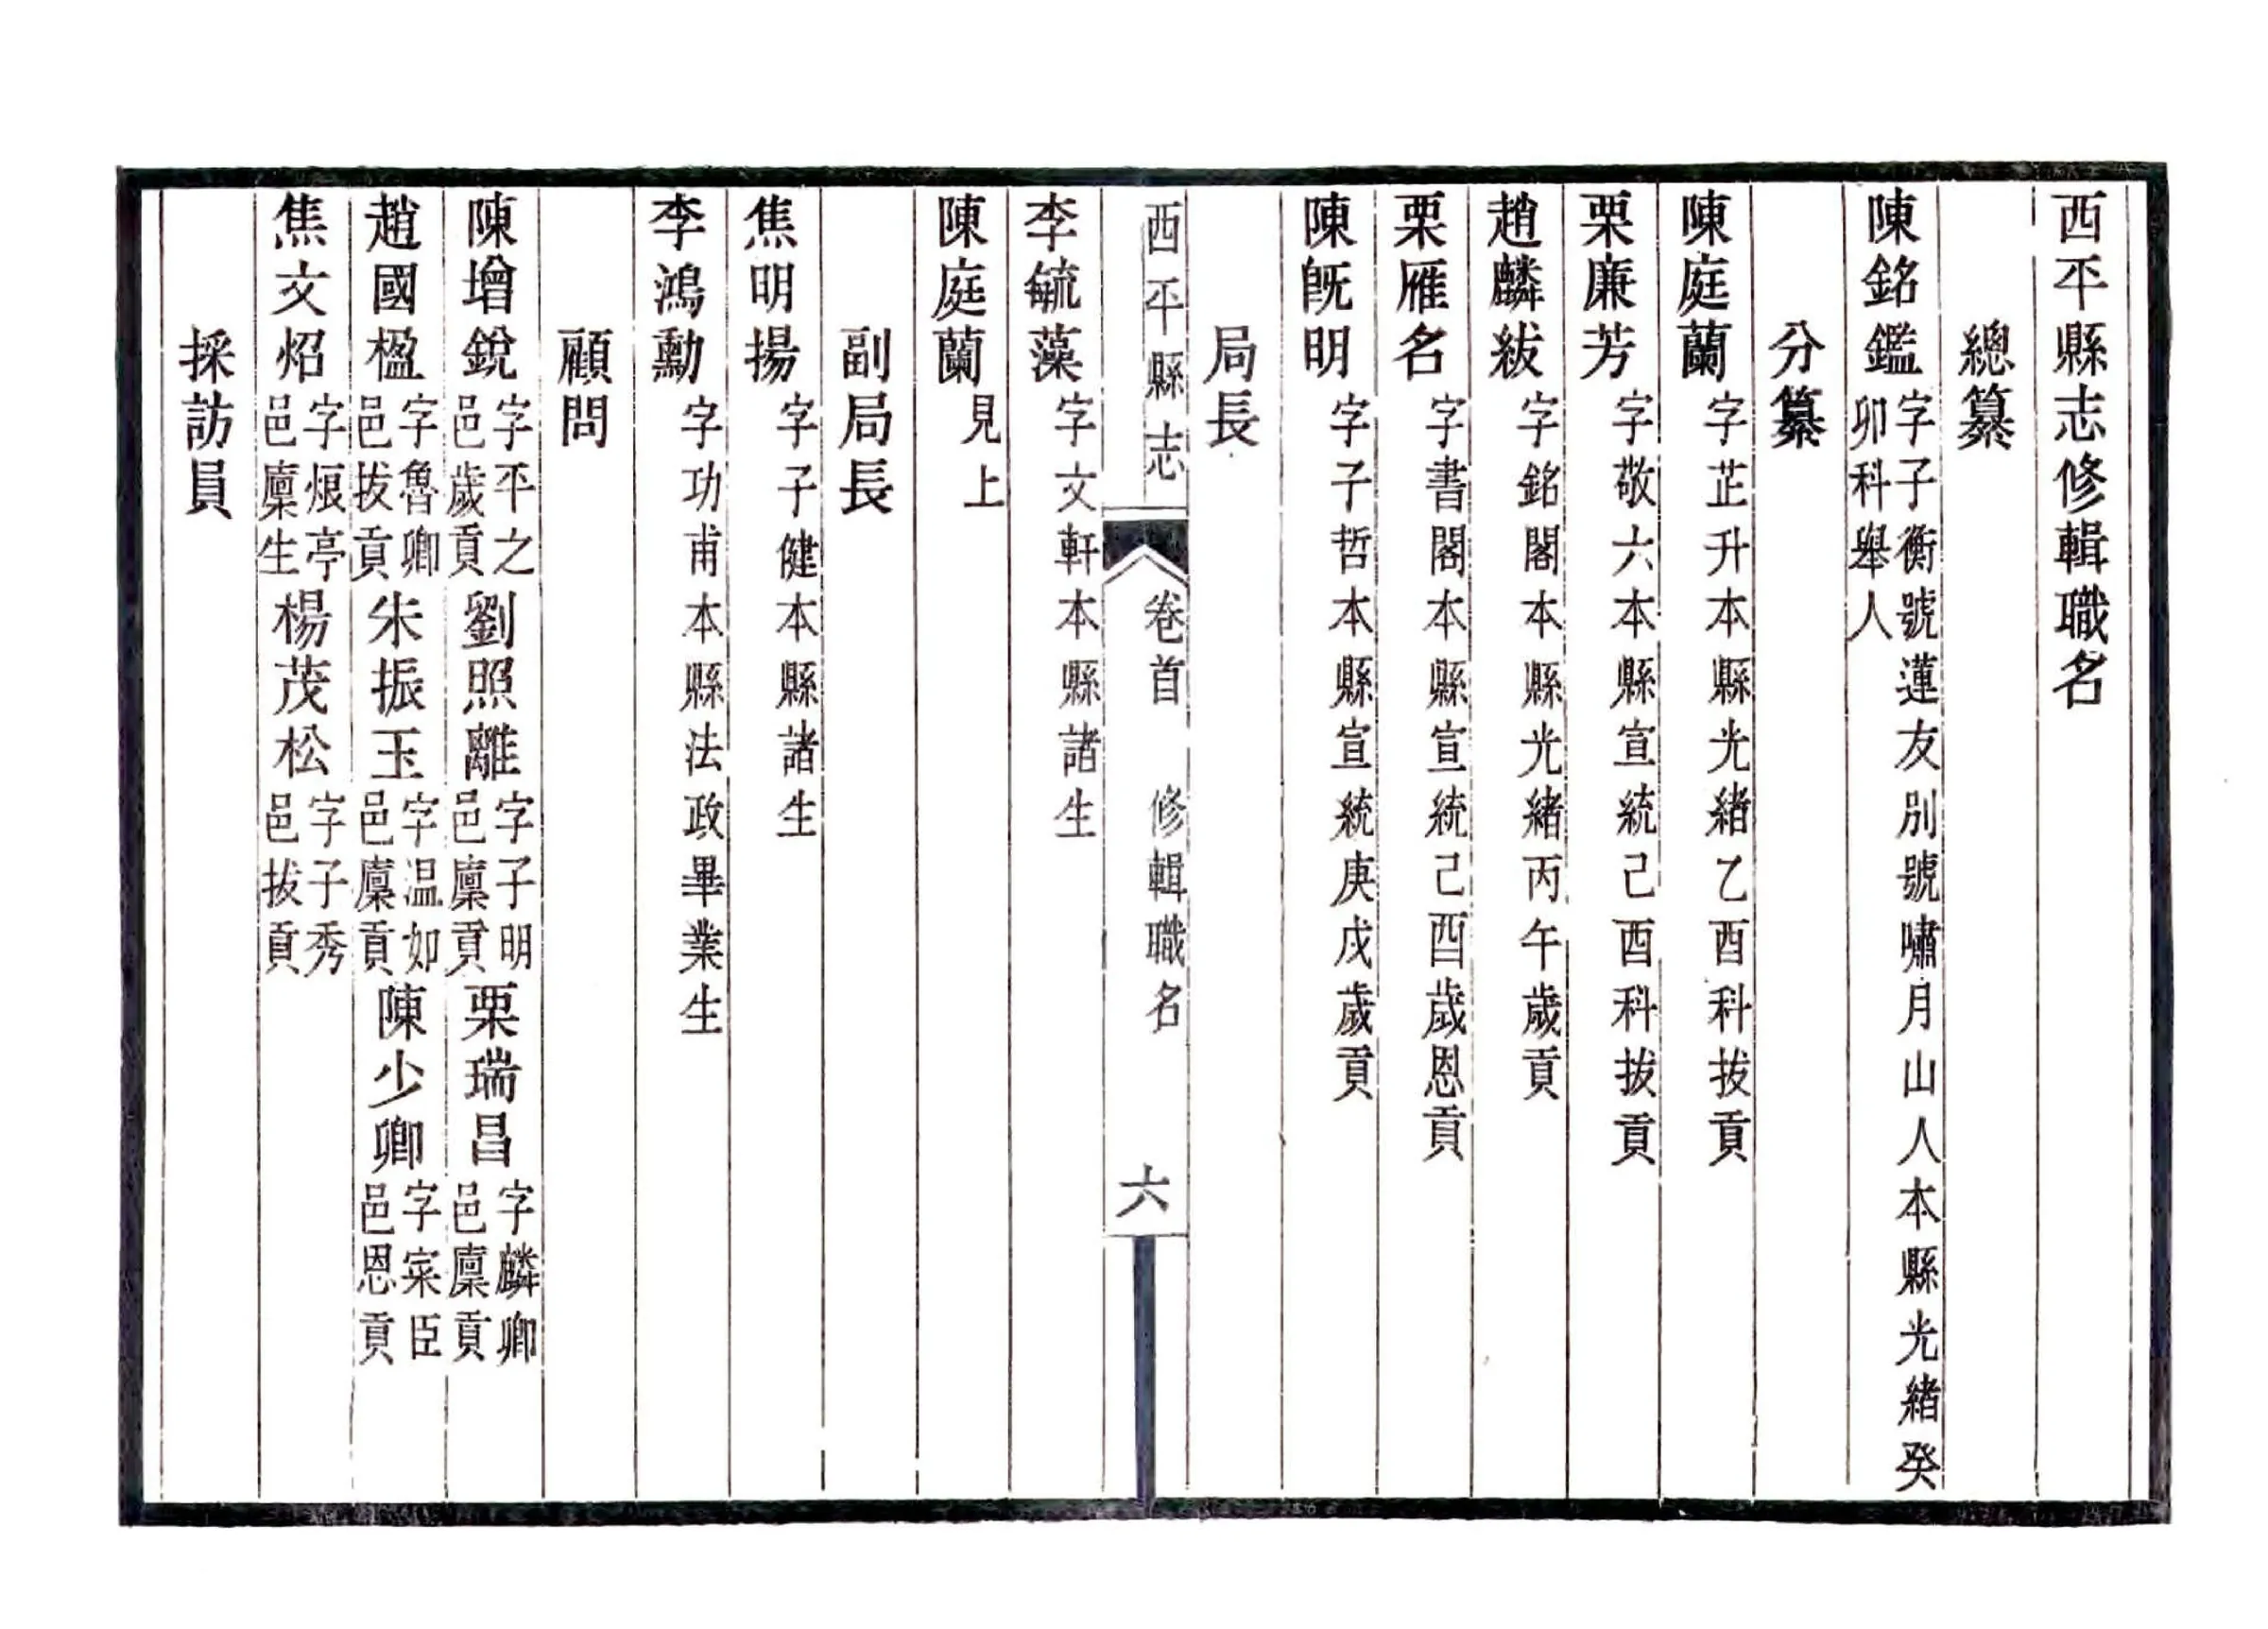 西平縣志修輯職名
總纂
陳銘鑑字子衡號蓮友別號嘯月山人本縣光緒癸卯科舉人
分纂
陳庭蘭字芷升本縣光緒乙酉科拔貢
栗廉芳字敬六本縣宣統己酉科拔貢
趙麟紱字銘閣本縣光緒丙午歲貢
栗雁名字書閣本縣宣統己酉歲恩貢
陳旣明字子哲本縣宣統庚戌歲貢
局長
西平縣志 卷首 修輯職名 六
李毓藻字文軒本縣諸生
陳庭蘭見上
副局長
焦明揚字子健本縣諸生
李鴻勳字功甫本縣法政畢業生
顧問
陳增銳字平之邑歲貢 劉照離字子明邑廩貢 栗瑞昌字麟卿邑廩貢
趙國楹字魯卿邑拔貢 朱振玉字温如邑廩貢 陳少卿字寀臣邑恩貢
焦文炤字烺亭邑廩生 楊茂松字子秀邑拔貢
採訪員